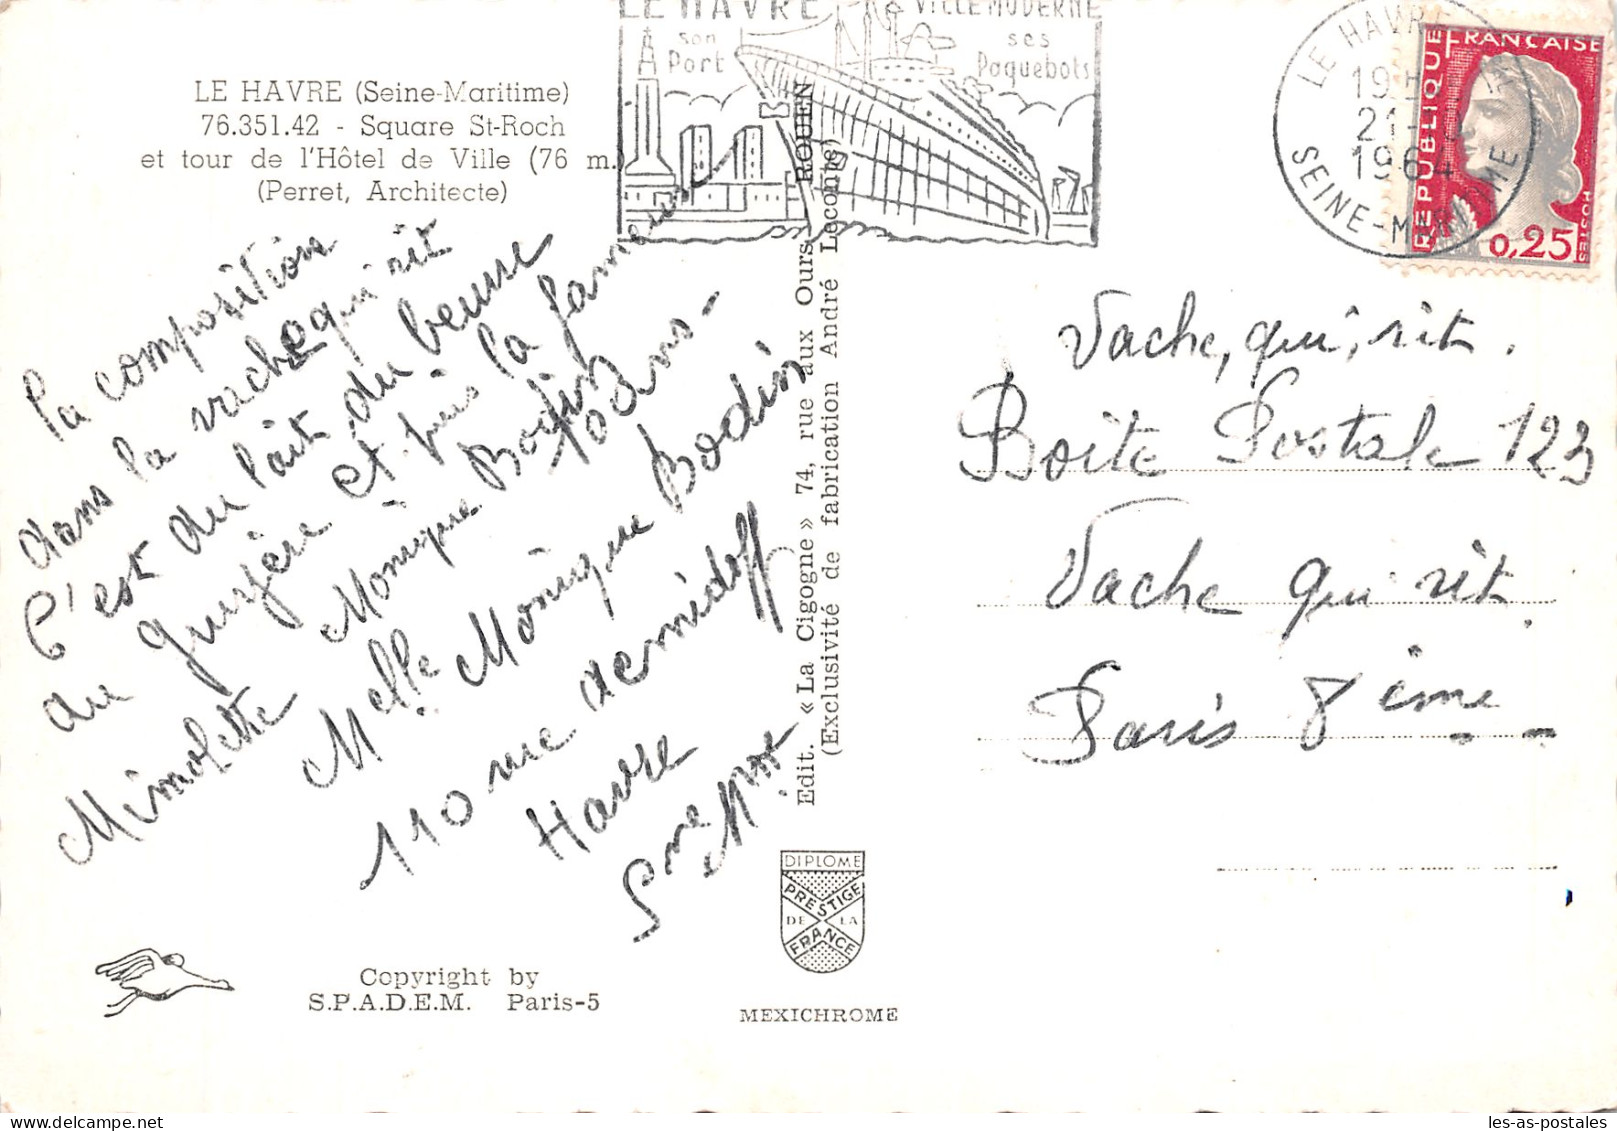 LE HAVRE (Seine-Maritime)
76.351.42 - Square St-Roch
et tour de l'Hôtel de Ville (76 m.)
(Perret, Architecte)
LE HAVRE
son
Port
VILLE MODERNE
ses
Paquebots
LE HAVRE
19H
21
1964
SEINE-MARITIME
REPUBLIQUE
FRANÇAISE
0,25
DECARIS
la composition
dans la vache qui rit
C'est du lait du beurre
du gruyère et puis la fameuse
Mimolette Monique Bodin
10 ans -
Melle Monique Bodin
110 rue demidoff
Havre
Sne Mme
Edit. «La Cigogne» 74, rue aux Ours - ROUEN
(Exclusivité de fabrication André Leconte)
Vache, qui, rit.
Boîte Postale 123
Vache qui rit
Paris 8ième
DIPLOME
PRESTIGE
DE LA
FRANCE
Copyright by
S.P.A.D.E.M. Paris-5
MEXICHROME
les-as-postales